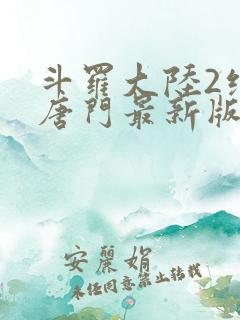 斗羅大陸2絕
唐門最新版
安麗娟
未任同意禁止转载